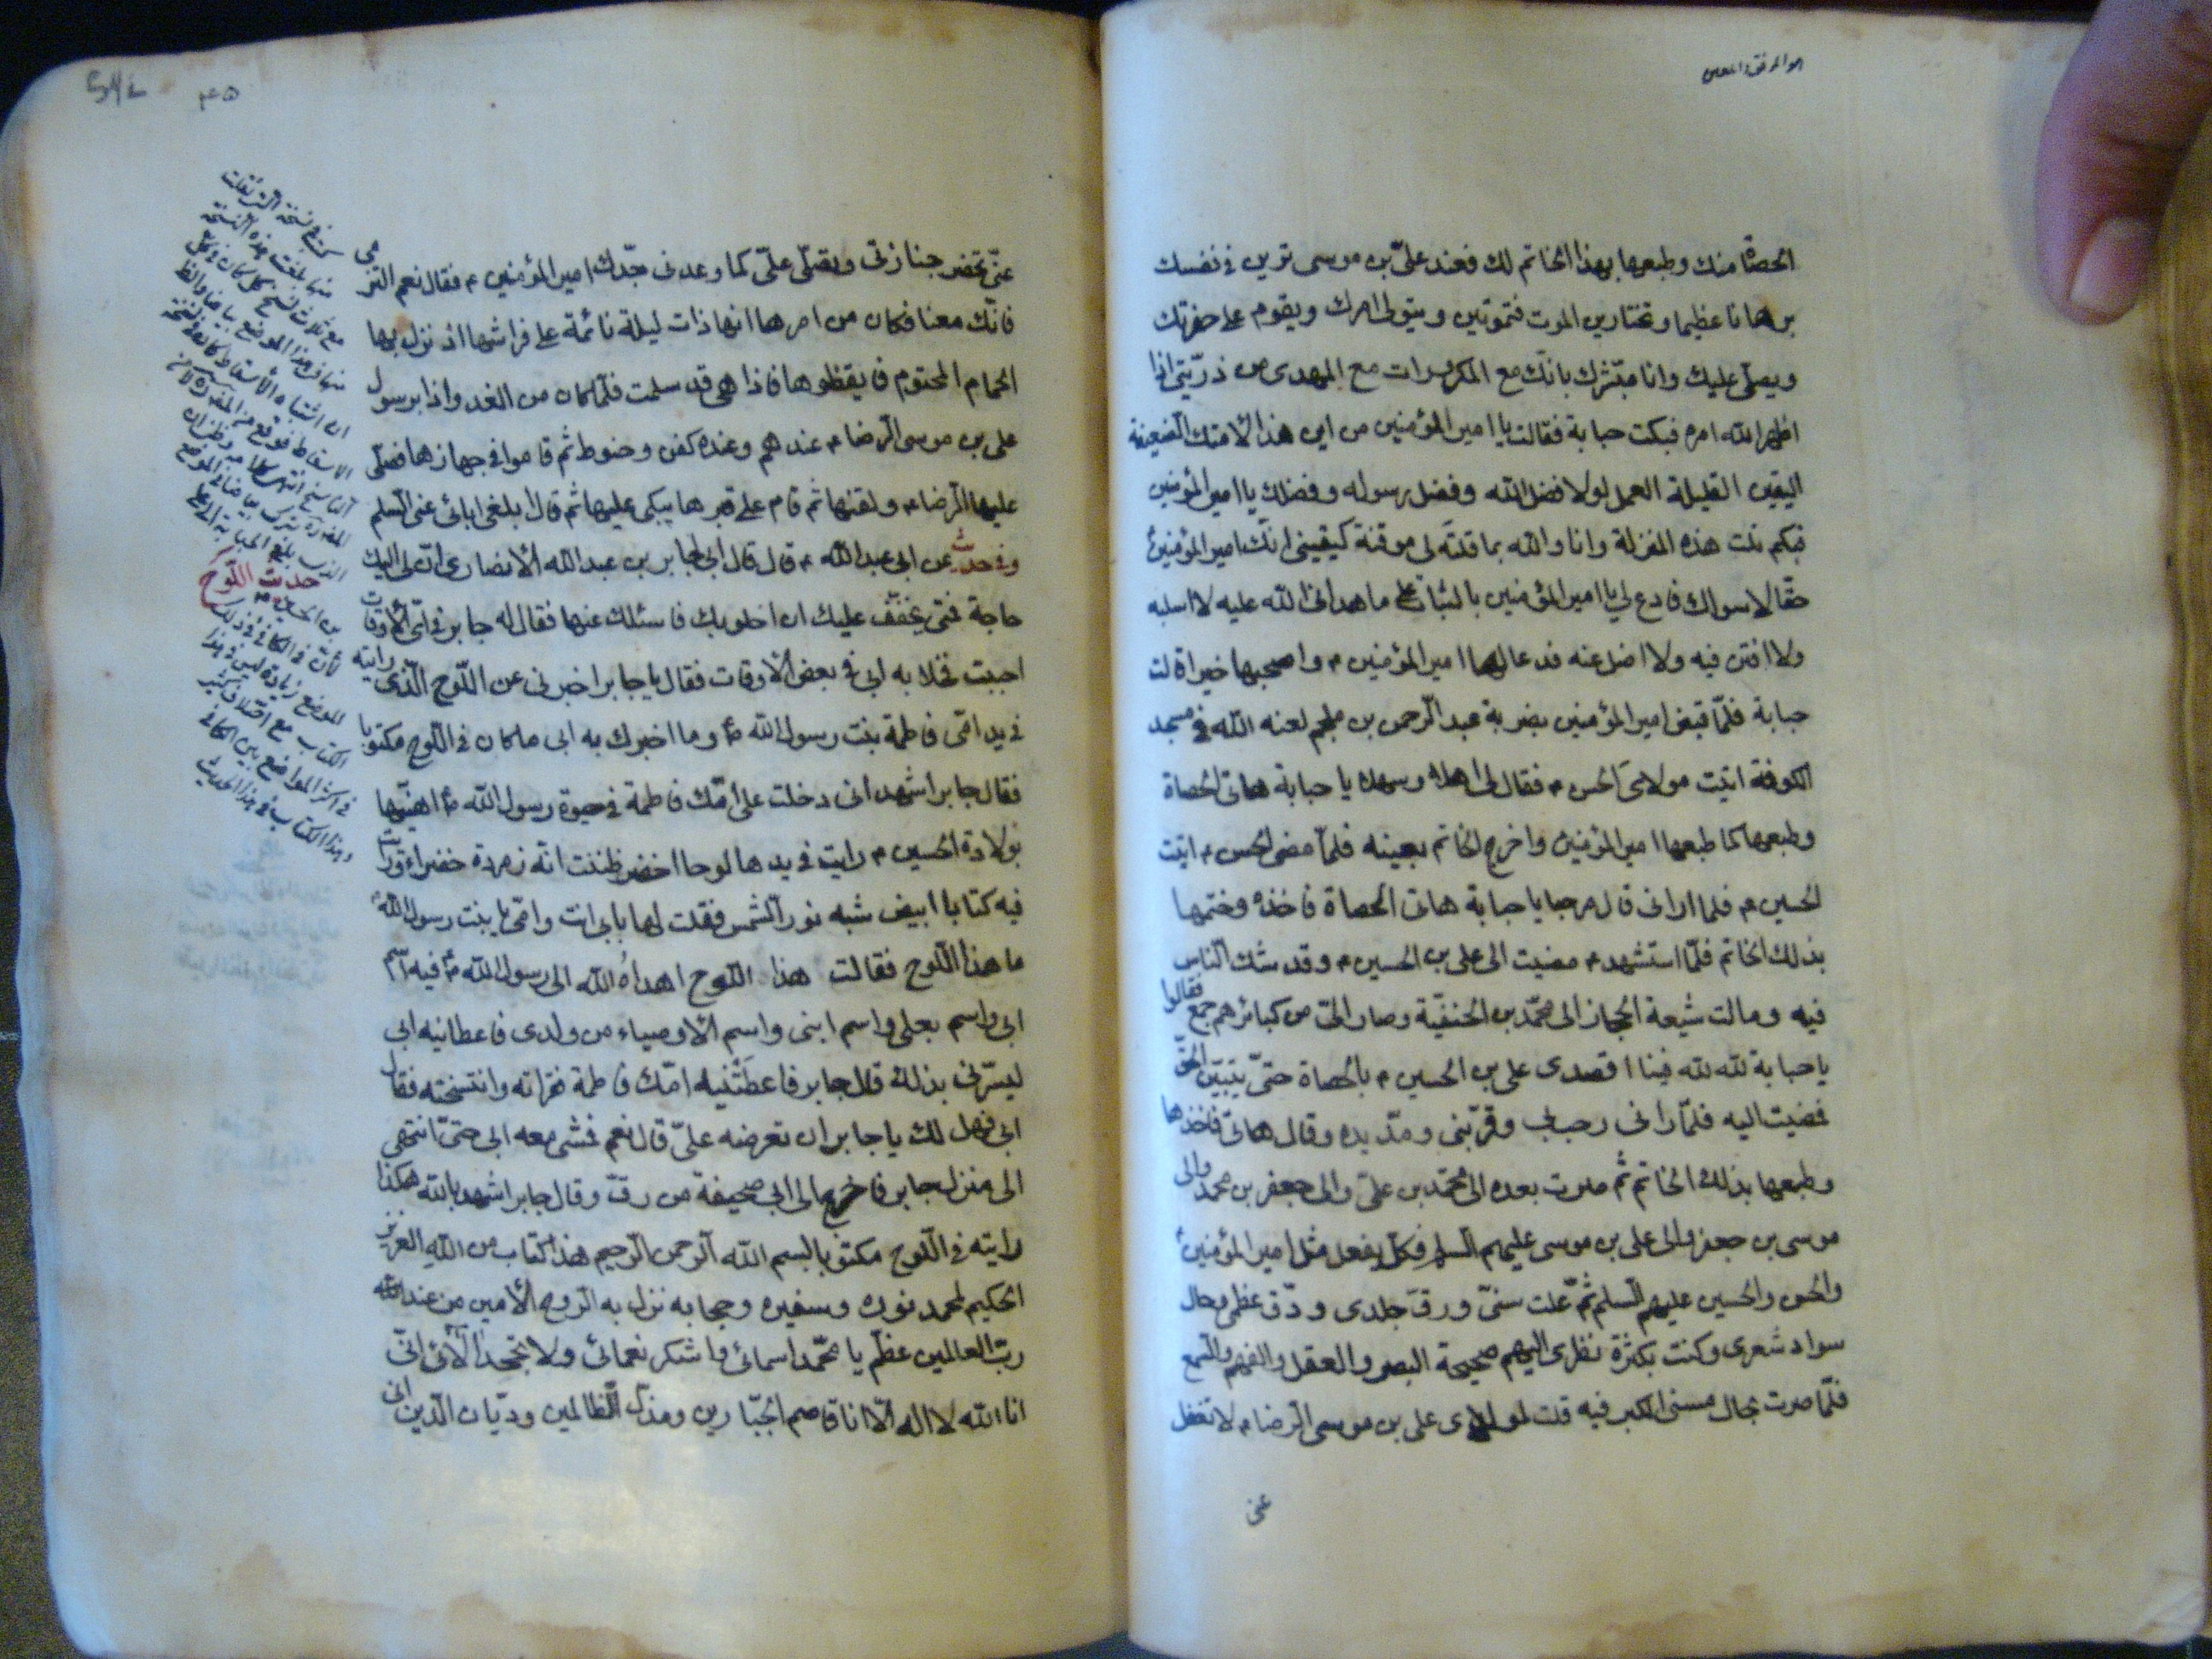 هو الموفق والمعين
الحصاة منك وطبعها بهذا الخاتم لك فعند علىّ بن موسى ترين فى نفسك
برهانا عظيما وتختارين الموت فتموتين ويتولى امرك ويقوم على حفرتك
ويصلّى عليك وانا مبشّرك بانّك مع المكرورات مع المهدى من ذرّيّتى اذا
اظهر الله امره فبكت حبابة فقالت يا امير المؤمنين من اين هذا لأمتك الضعيفة
اليقين القليلة العمل لولا فضل الله وفضل رسوله وفضلك يا امير المؤمنين
فبكم نلت هذه المنزلة وانا والله بما قلته لى موقنة كيقينى انّك امير المؤمنين
حقّا لا سواك فادع لى يا امير المؤمنين بالثبات على ما هدانى الله عليه لا اسلبه
ولا افتن فيه ولا اضل عنه فدعا لها امير المؤمنين ء واصحبها خيرا قالت
حبابة فلمّا قبض امير المؤمنين بضربة عبد الرّحمن بن ملجم لعنه الله فى مسجد
الكوفة اتيت مولاى الحسن ء فقال لى اهلا وسهلا يا حبابة هاتى الحصاة
وطبعها كما طبعها امير المؤمنين واخرج الخاتم بعينه فلمّا مضى الحسن ء اتيت
الحسين ء فلما رانى قال مرحبا يا حبابة هاتى الحصاة فاخذه وختمها
بذلك الخاتم فلمّا استشهد ء مضيت الى على بن الحسين ء وقد شك النّاس
فيه ومالت شيعة الحجاز الى محمّد بن الحنفيّة وصار الىّ من كبائرهم جمع فقالوا
يا حبابة الله الله فينا اقصدى على بن الحسين ء بالحصاة حتّى يتبيّن الحقّ
فمضيت اليه فلمّا رانى رحب بى وقرّبنى ومدّ يده وقال هاتى فاخذها
وطبعها بذلك الخاتم ثم صرت بعده الى محمّد بن علىّ والى جعفر بن محمد والى
موسى بن جعفر والى على بن موسى عليهم السلم فكلّ يفعل مثل امير المؤمنين
والحسن والحسين عليهم السلم ثمّ علت سنىّ ورقّ جلدى ودقّ عظمى وحال
سواد شعرى وكنت بكثرة نظرى اليهم صحيحة البصر والعقل والفهم والسمع
فلمّا صرت بحال مسنى الكبر فيه قلت لمولاى على بن موسى الرضا ء لا تغفل
عنى
٤٥
عنّى تحضر جنازتى وتصلّى علىّ كما وعدنى جدّك امير المؤمنين ء فقال نعم الزمى
فانّك معنا فكان من امرها انها ذات ليلة نائمة على فراشها اذ نزل بها
الحمام المحتوم فايقظوها فاذا هى قد سلمت فلمّا كان من الغد واذا برسول
على بن موسى الرّضا ء عندهم وعنده كفن وحنوط ثم قاموا فى جهازها فصلّى
عليها الرّضا ء ولقنها ثم قام على قبرها يبكى عليها ثم قال بلغى ابائى عنى السلم
وفى حديث عن ابى عبد الله ء قال قال ابى لجابر بن عبد الله الانصارى انّ لى اليك
حاجة فمتى يخفّف عليك ان اخلو بك فاسئلك عنها فقال له جابر فى اىّ الاوقات
احببت فخلا به ابى فى بعض الاوقات فقال يا جابر اخبرنى عن اللّوح الّذى رايته
فى يد امّى فاطمة بنت رسول الله ص وما اخبرك به ابى ما كان فى اللّوح مكتوبا
فقال جابر اشهد انى دخلت على امّك فاطمة فى حيوة رسول الله ص اهنّيها
بولادة الحسين ء رايت فى يدها لوحا اخضر ظننت انّه زمردة خضراء ورايت
فيه كتابا ابيض شبه نور الشمس فقلت لها بابى انت وامّى يا بنت رسول الله
ما هذا اللّوح فقالت هذا اللّوح اهداه الله الى رسول الله ص فيه اسم
ابى واسم بعلى واسم ابنى واسم الاوصياء من ولدى فاعطانيه ابى
ليسرّنى بذلك قال جابر فاعطتنيه امّك فاطمة فقراته وانتسخته فقال
ابى فهل لك يا جابر ان تعرضه علىّ قال نعم فمشى معه ابى حتّى انتهى
الى منزل جابر فاخرج الى ابى صحيفة من رقّ وقال جابر اشهد بالله هكذا
رايته فى اللّوح مكتوبا بسم الله الرّحمن الرّحيم هذا كتاب من الله العزيز
الحكيم لمحمد نوره وسفيره وحجابه نزل به الرّوح الأمين من عند الله
ربّ العالمين عظّم يا محمّد اسمائى واشكر نعمائى ولا تجحد آلائى انّى
انا الله لا اله الّا انا قاصم الجبّارين ومذلّ الظالمين وديّان الدّين انى
حديث اللّوح
لأنّ فى الكافى فى ذلك
الموضع زيادة ليس فى هذا
الكتاب مع اختلاف كثير
فى اكثر المواضع بين الكافى
وهذا الكتاب فى هذا الحديث